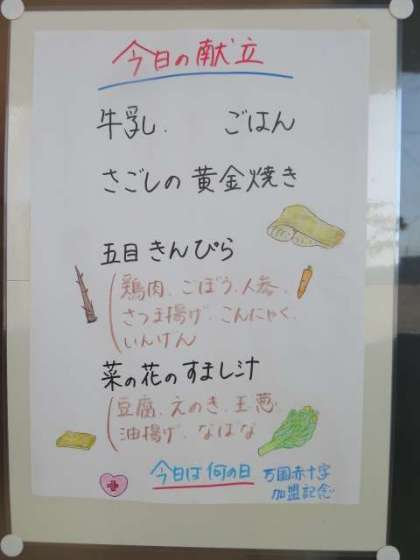 今日の献立
牛乳. ごはん
さごしの黄金焼き
五目きんぴら
鶏肉.ごぼう.人参.
さつま揚げ.こんにゃく.
いんげん
菜の花のすまし汁
豆腐.えのき.玉葱.
油揚げ.なばな
今日は何の日 万国赤十字
加盟記念